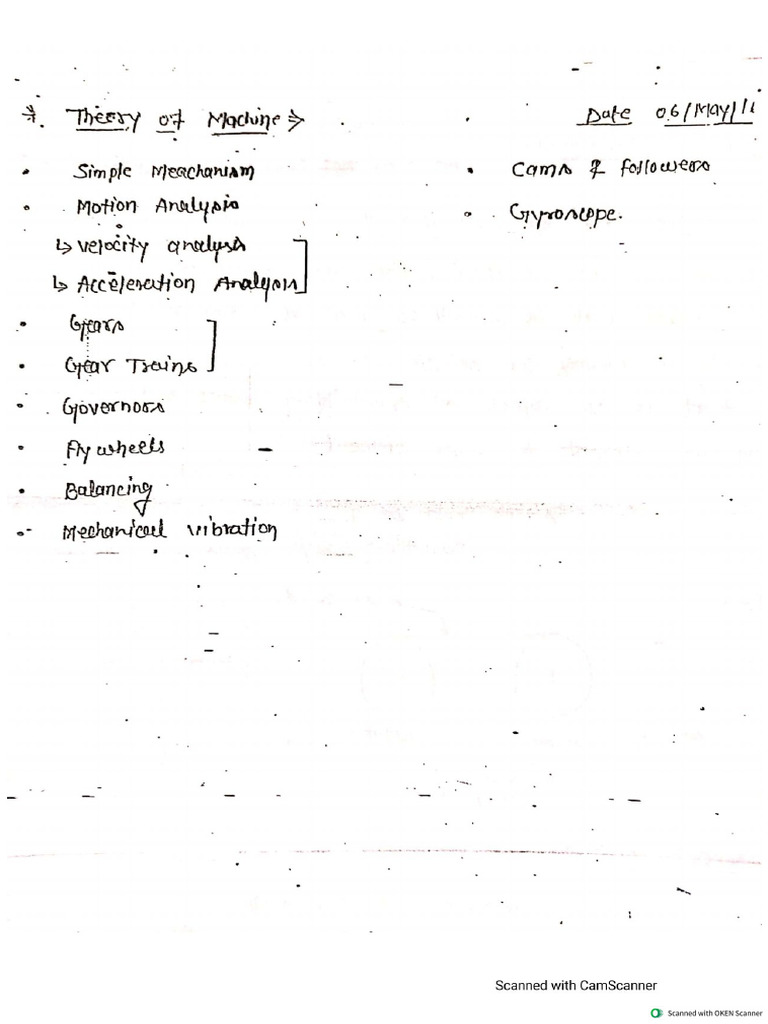 * Theory of Machine ⇒
Date 06/May/11
• Simple Meachanism
• Motion Analysis
↳ velocity analysis
↳ Acceleration Analysis
• Gears
• Gear Trains
• Governors
• Fly wheels
• Balancing
• Mechanical vibration
• Cams & followers
• Gyroscope.
Scanned with CamScanner
Scanned with OKEN Scanner